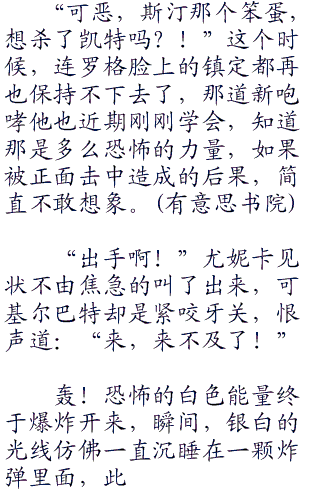 “可恶，斯汀那个笨蛋，
想杀了凯特吗？！”这个时
候，连罗格脸上的镇定都再
也保持不下去了，那道新咆
哮他也近期刚刚学会，知道
那是多么恐怖的力量，如果
被正面击中造成的后果，简
直不敢想象。(有意思书院)
“出手啊！”尤妮卡见
状不由焦急的叫了出来，可
基尔巴特却是紧咬牙关，恨
声道：“来，来不及了！”
轰！恐怖的白色能量终
于爆炸开来，瞬间，银白的
光线仿佛一直沉睡在一颗炸
弹里面，此